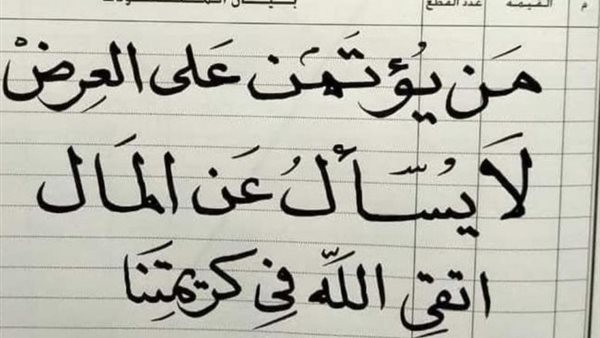 م القيمة عدد القطع
مَن يُؤتَمَن عَلى العِرضْ
لَا يُسّأَلُ عَن المَال
اتقِي اللَّه فِي كريمتِنَا